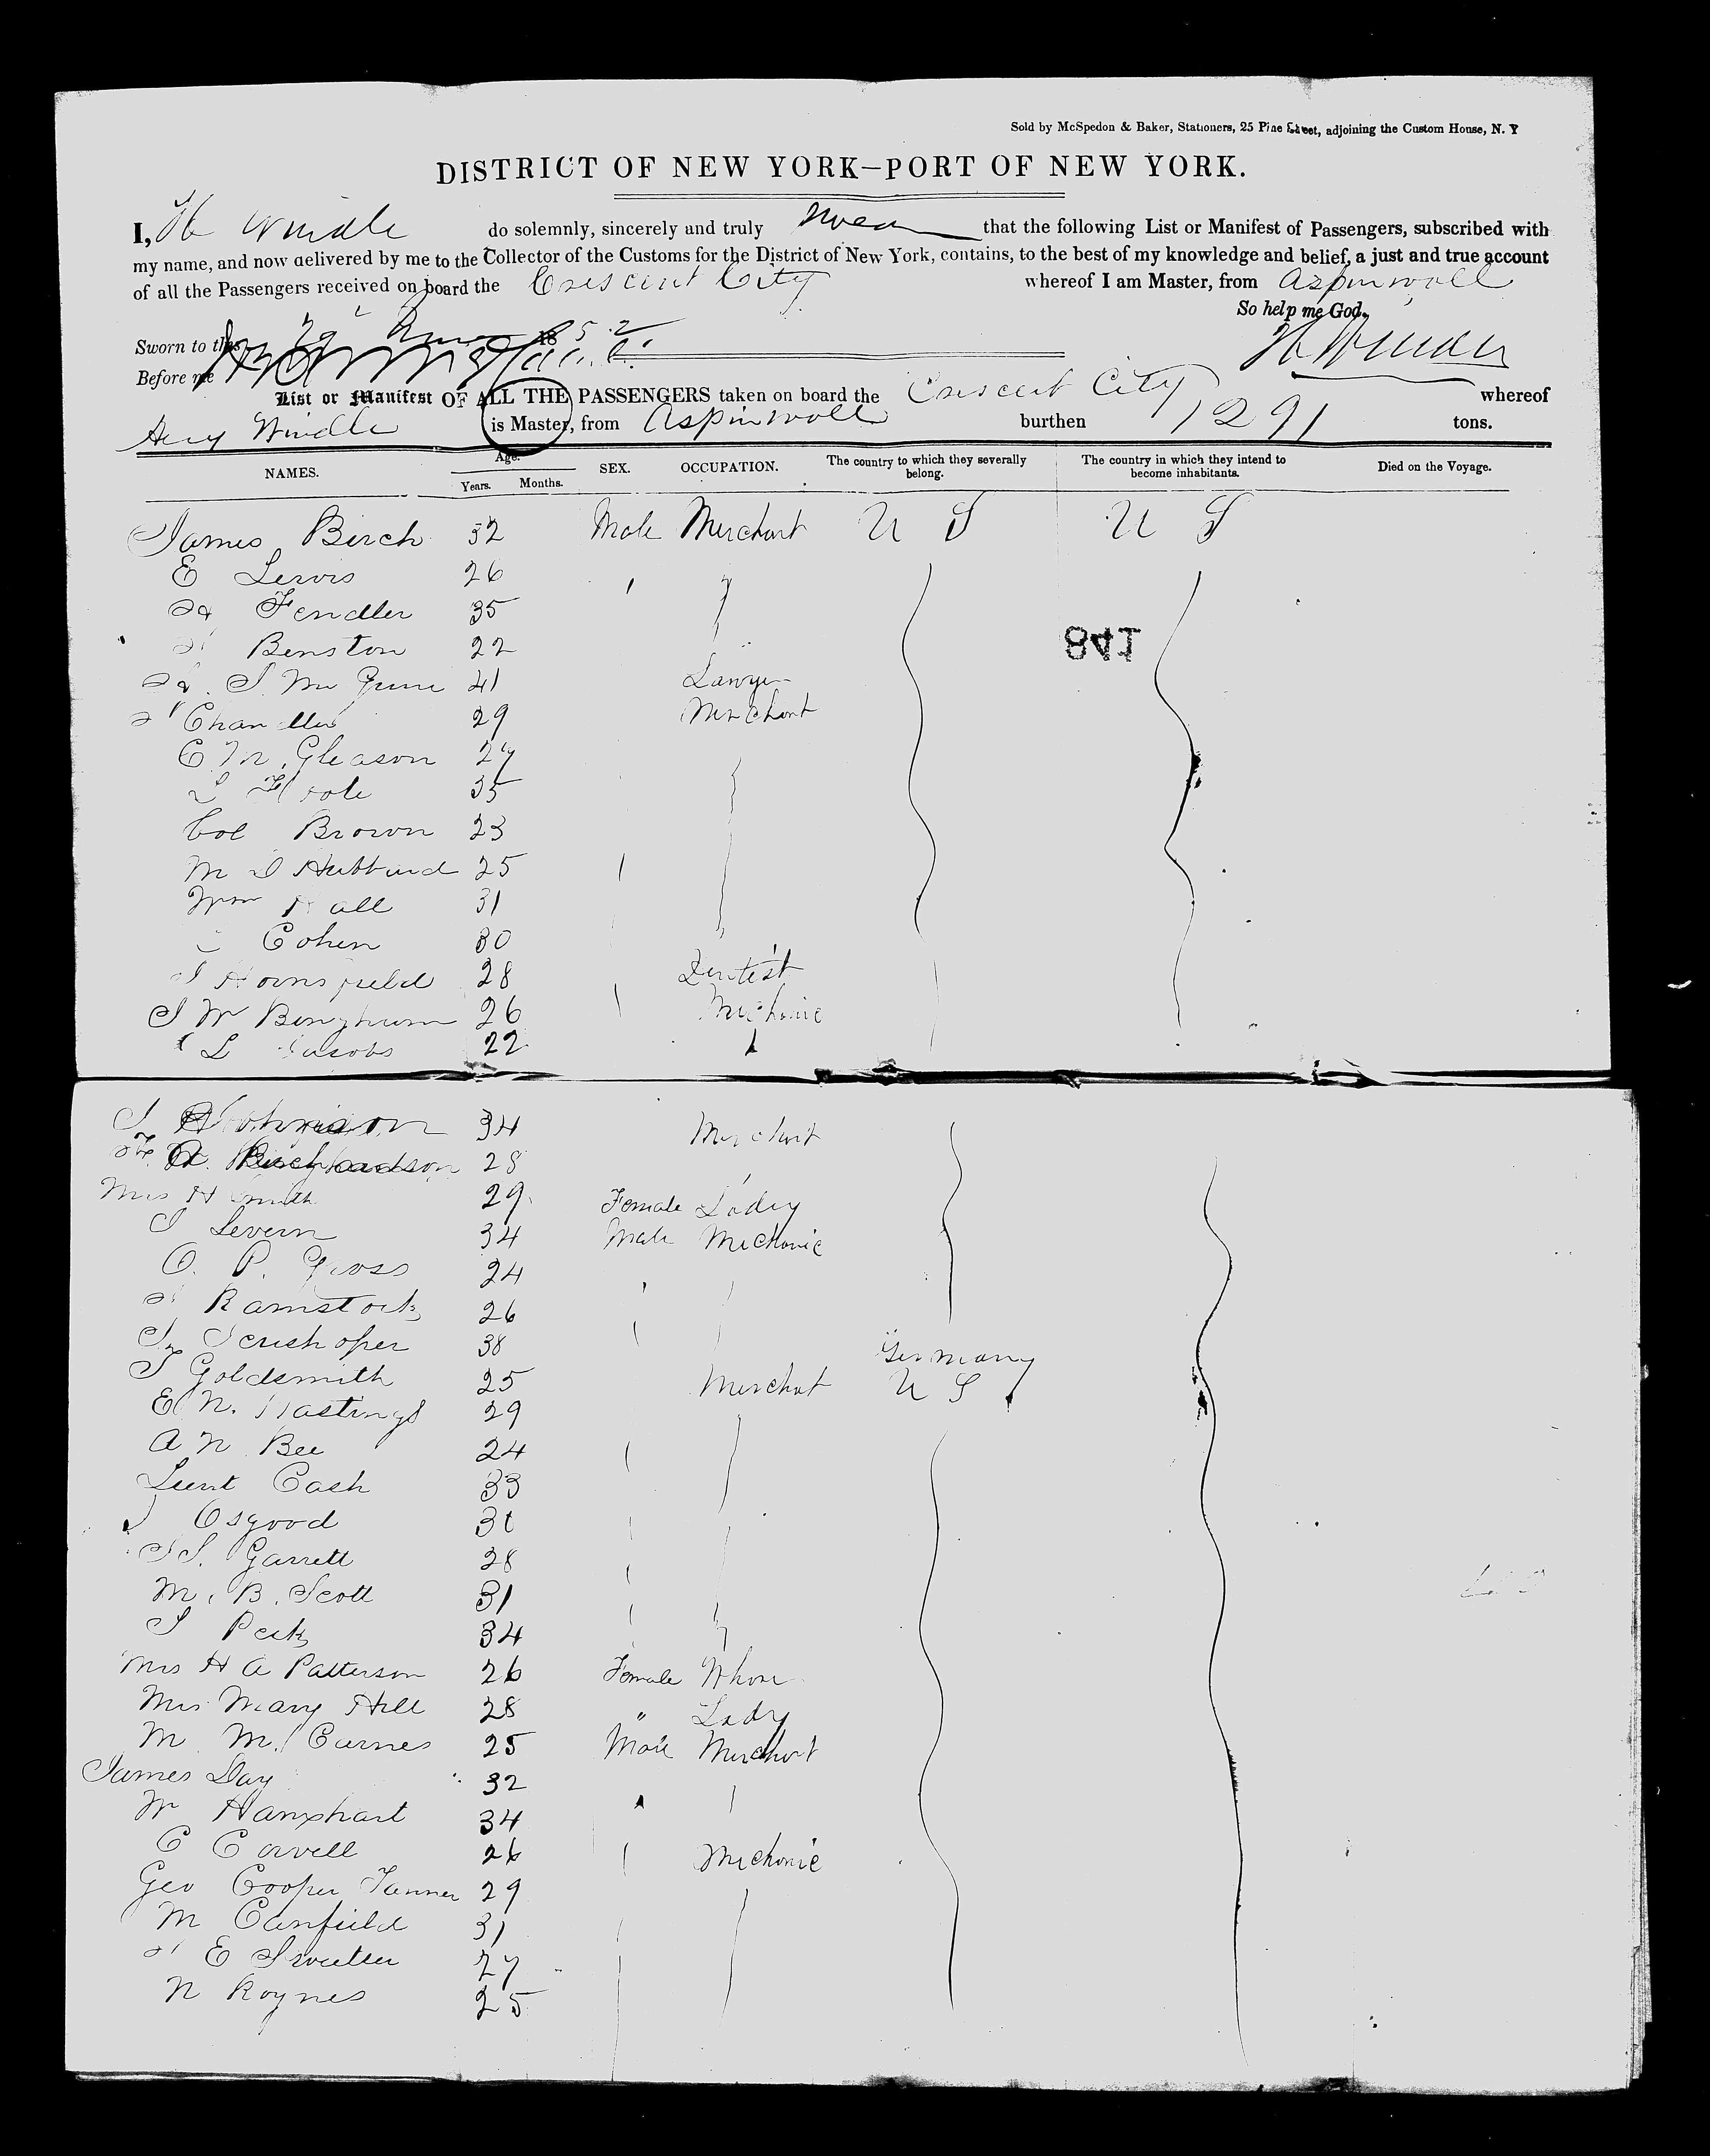 Sold by McSpedon & Baker, Stationers, 25 Pine Street, adjoining the Custom House, N. Y
DISTRICT OF NEW YORK—PORT OF NEW YORK.
I, H Windle do solemnly, sincerely and truly swear that the following List or Manifest of Passengers, subscribed with
my name, and now delivered by me to the Collector of the Customs for the District of New York, contains, to the best of my knowledge and belief, a just and true account
of all the Passengers received on board the Crescent City whereof I am Master, from Aspinwall
So help me God.
Sworn to this 1852
Before me
H Windle
List or Manifest OF ALL THE PASSENGERS taken on board the Crescent City whereof
Henry Windle is Master, from Aspinwall burthen 1291 tons.
NAMES. Age. Years. Months. SEX. OCCUPATION. The country to which they severally belong. The country in which they intend to become inhabitants. Died on the Voyage.
James Birch 32 Male Merchant U S U S
E Lewis 26
Fendler 35
148
Benston 22
41 Lawyer
Chandler 29 Merchant
C M. Gleason 27
35
Col Brown 23
M D Hubbard 25
Wm Hall 31
Cohen 30
28 Dentist
J W Bingham 26 Mechanic
L Jacobs 22
34 Merchant
Richardson 28
Mrs H Smith 29 Female Lady
Levern 34 Male Mechanic
O. P. Gross 24
Ramstock 26
38 Germany
Goldsmith 25 Merchat U S
E N. Hastings 29
A N Bee 24
Lieut Cash 33
Osgood
Garrett 28
M. B. Scott 31
Peck 34
Mrs H A Patterson 26 Female
Mrs Mary Hill 28 " Lady
M M. Carnes 25 Male Merchant
James Day 32
W Hanxhart 34
C Corvell 26 Mechanic
Geo Cooper Tanner 29
M Canfield 31
E Sweetser 27
N Roynes 25